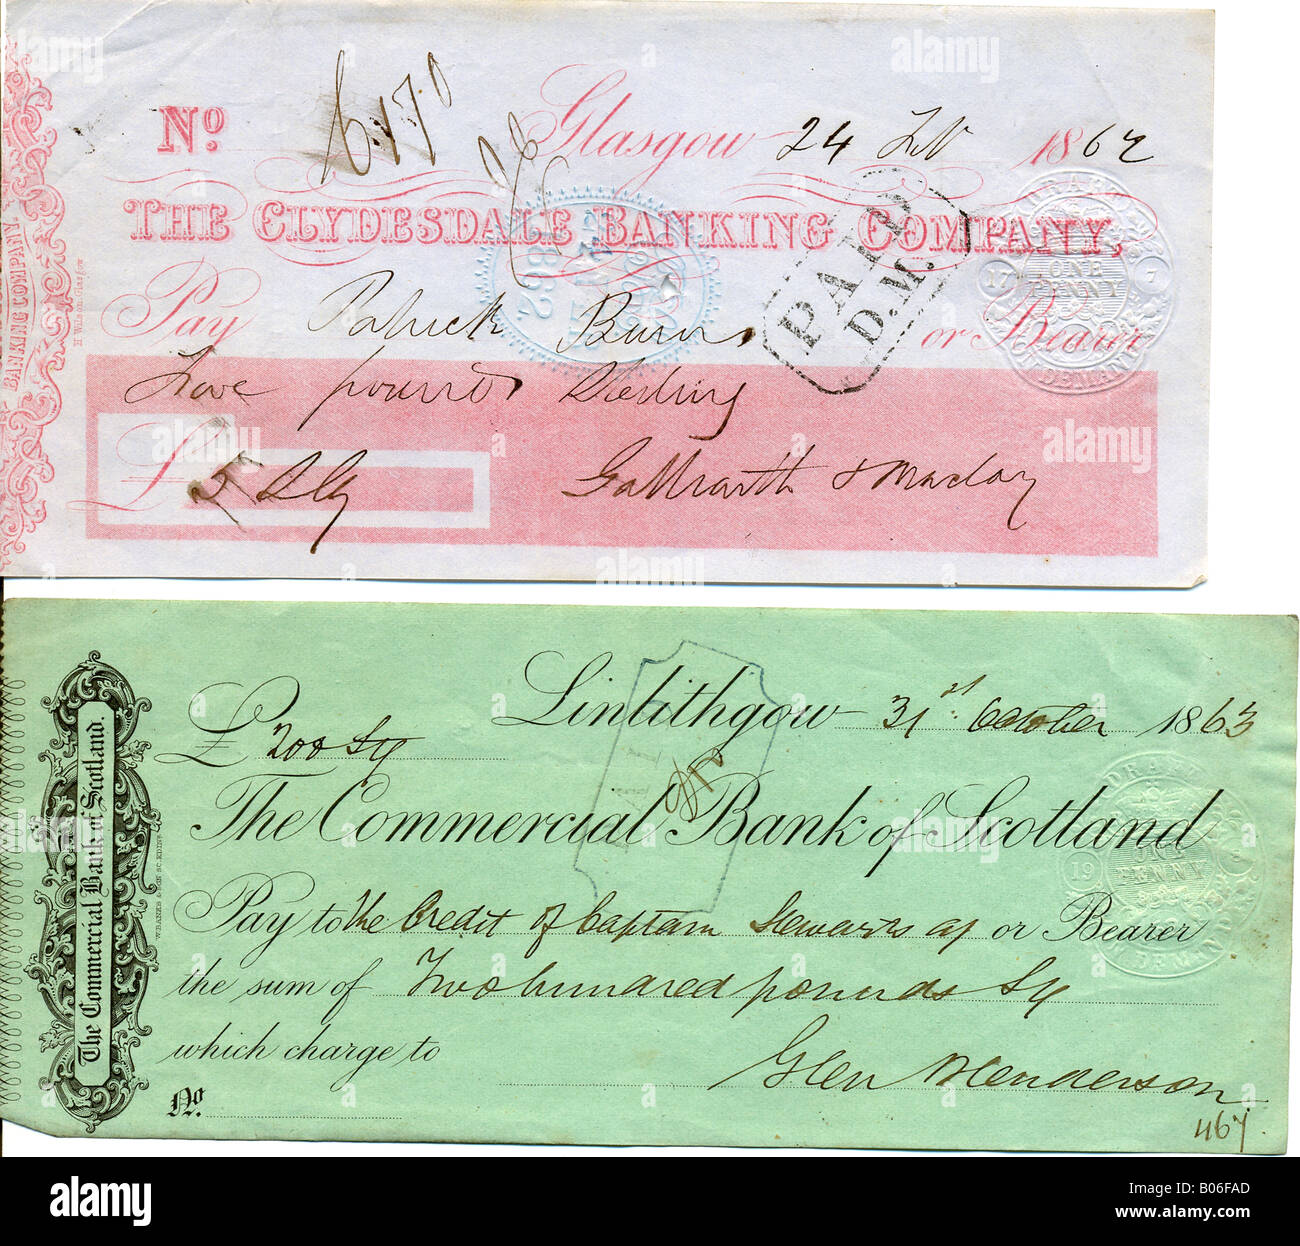 No. 6.17.0 Glasgow 24 Feb 1862
THE CLYDESDALE BANKING COMPANY,
Pay Patrick Burns, or Bearer
Five pounds Sterling
£ 5 Stg Galbraith & Maclay
BANKING COMPANY
PAID
D.M.
1862
DRAFT
17 ONE PENNY 7
DEMAND
Linlithgow 31st October 1863
£ 200 Stg
The Commercial Bank of Scotland
Pay to the Credit of Captain Stewart's a/ or Bearer
the sum of Two hundred pounds Stg
which charge to
Glen & Henderson
No.
467
The Commercial Bank of Scotland.
W. BANKS & SON SC. EDINR.
DRAFT
19 ONE PENNY
DEMAND
alamy
Image ID: B06FAD
www.alamy.com